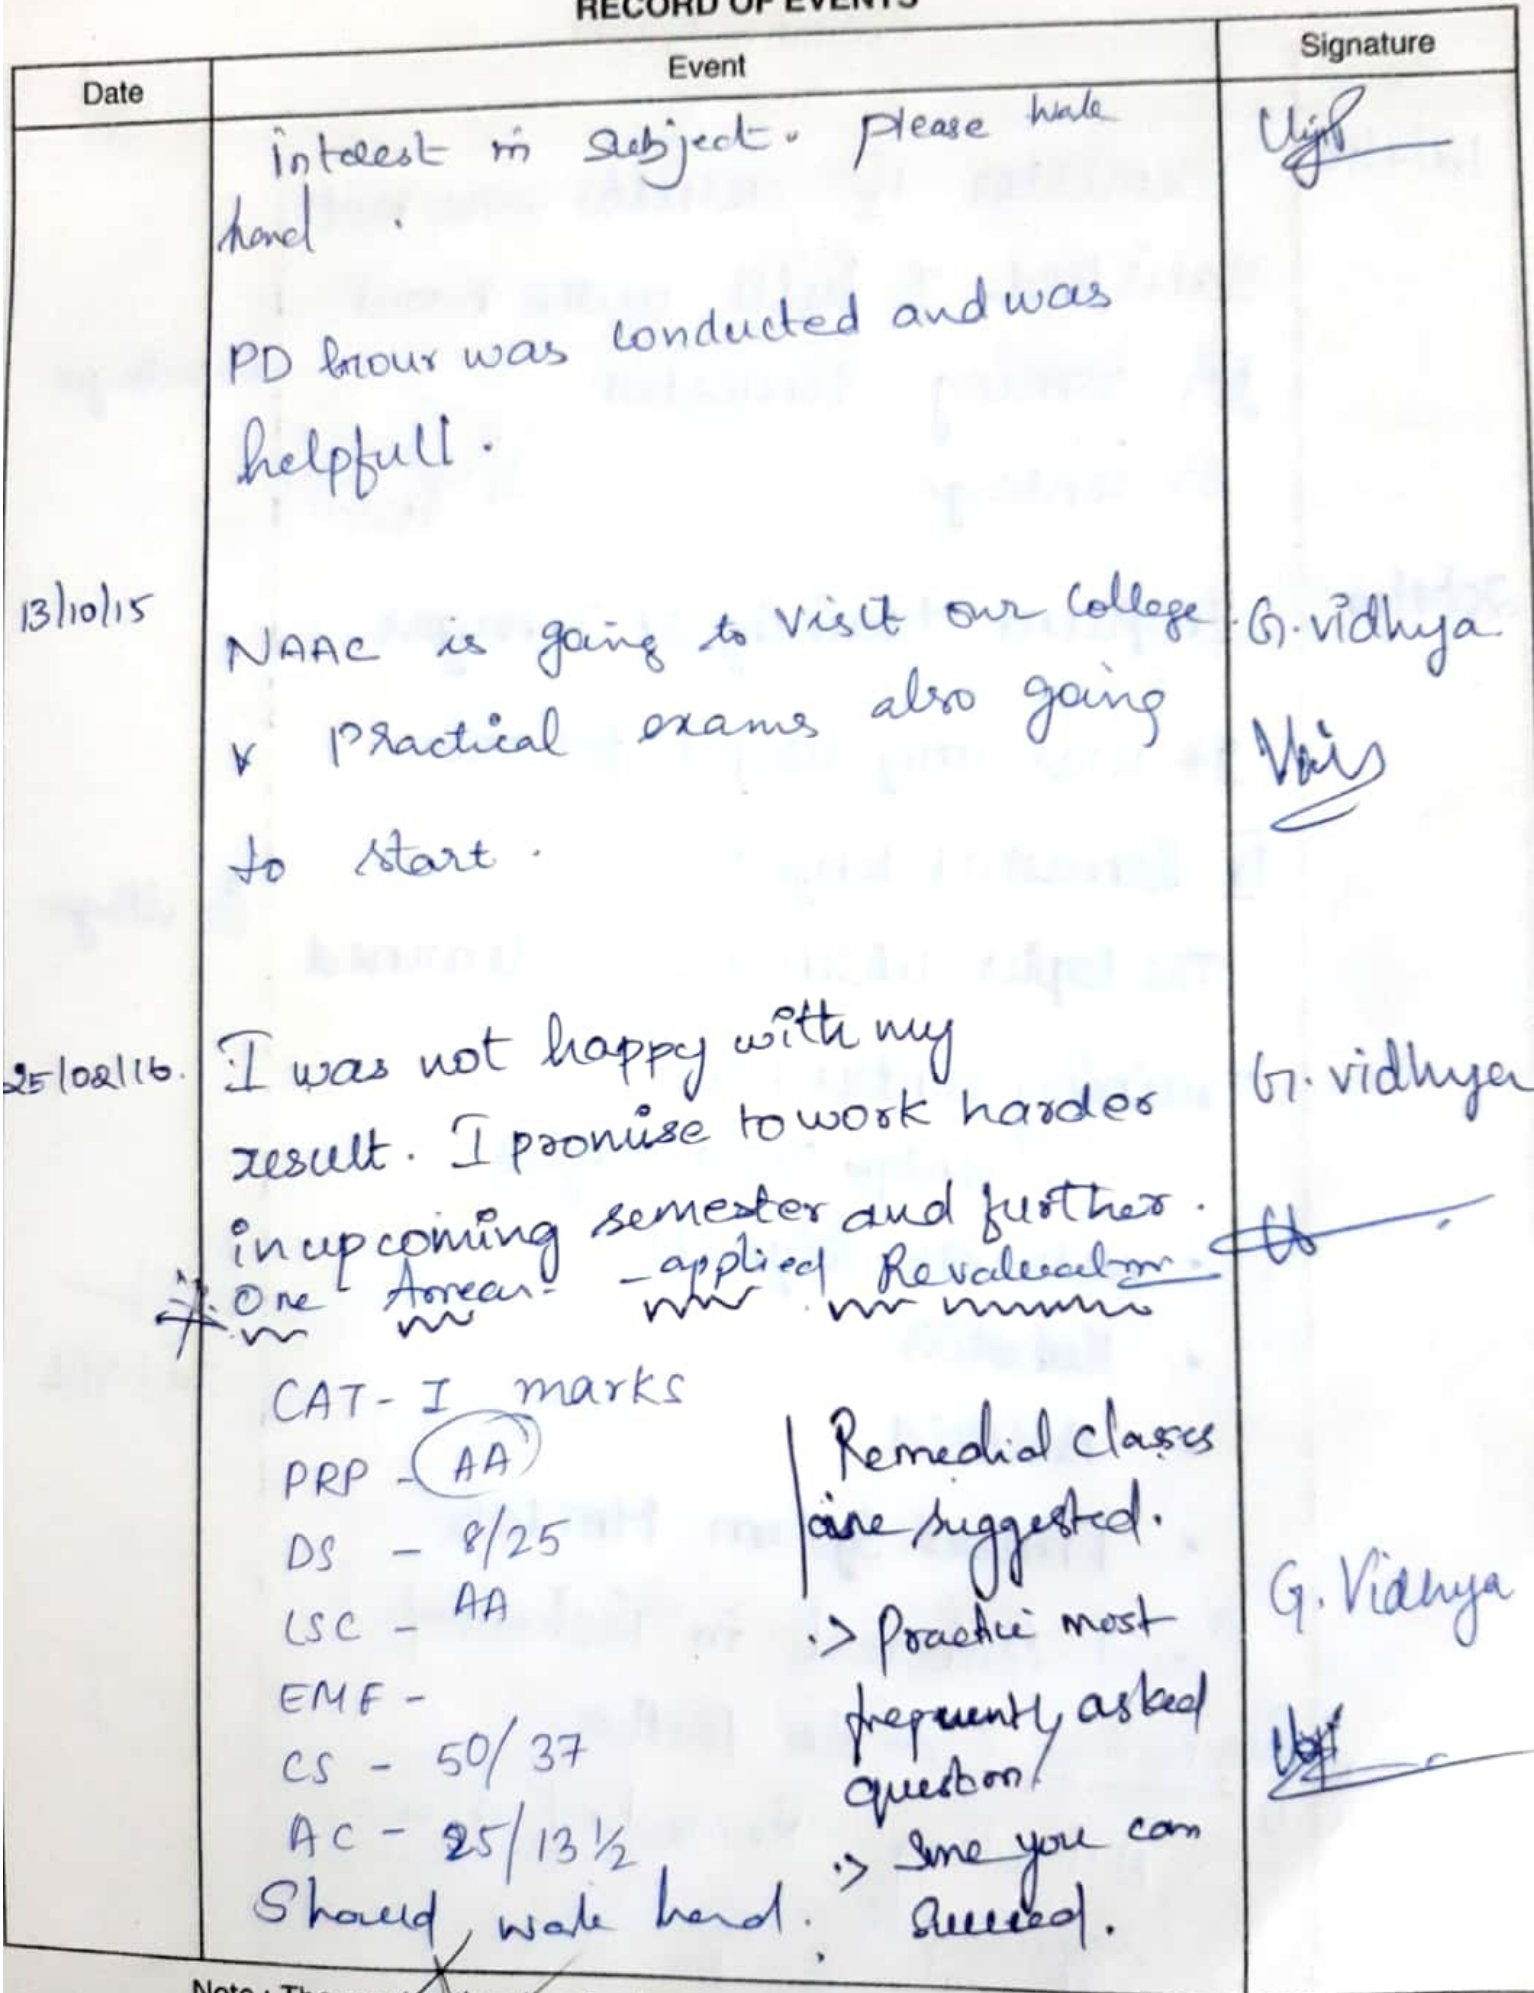 RECORD OF EVENTS
Date
Event
Signature
interest in subject. please work
hard.
PD hour was conducted and was
helpfull.
13/10/15
NAAC is going to visit our college.
G. vidhya
& practical exams also going
to start.
25/02/16.
I was not happy with my
G. vidhya
result. I promise to work harder
in upcoming semester and further.
One Arrear - applied Revaluation.
CAT - I marks
PRP - AA
DS - 8/25
LSC - AA
EMF -
CS - 50/37
AC - 25/13 1/2
Should work hard.
Remedial classes
are suggested.
.> Practice most
frequently asked
question/
.> Sure you can
succeed.
G. Vidhya
Note : The